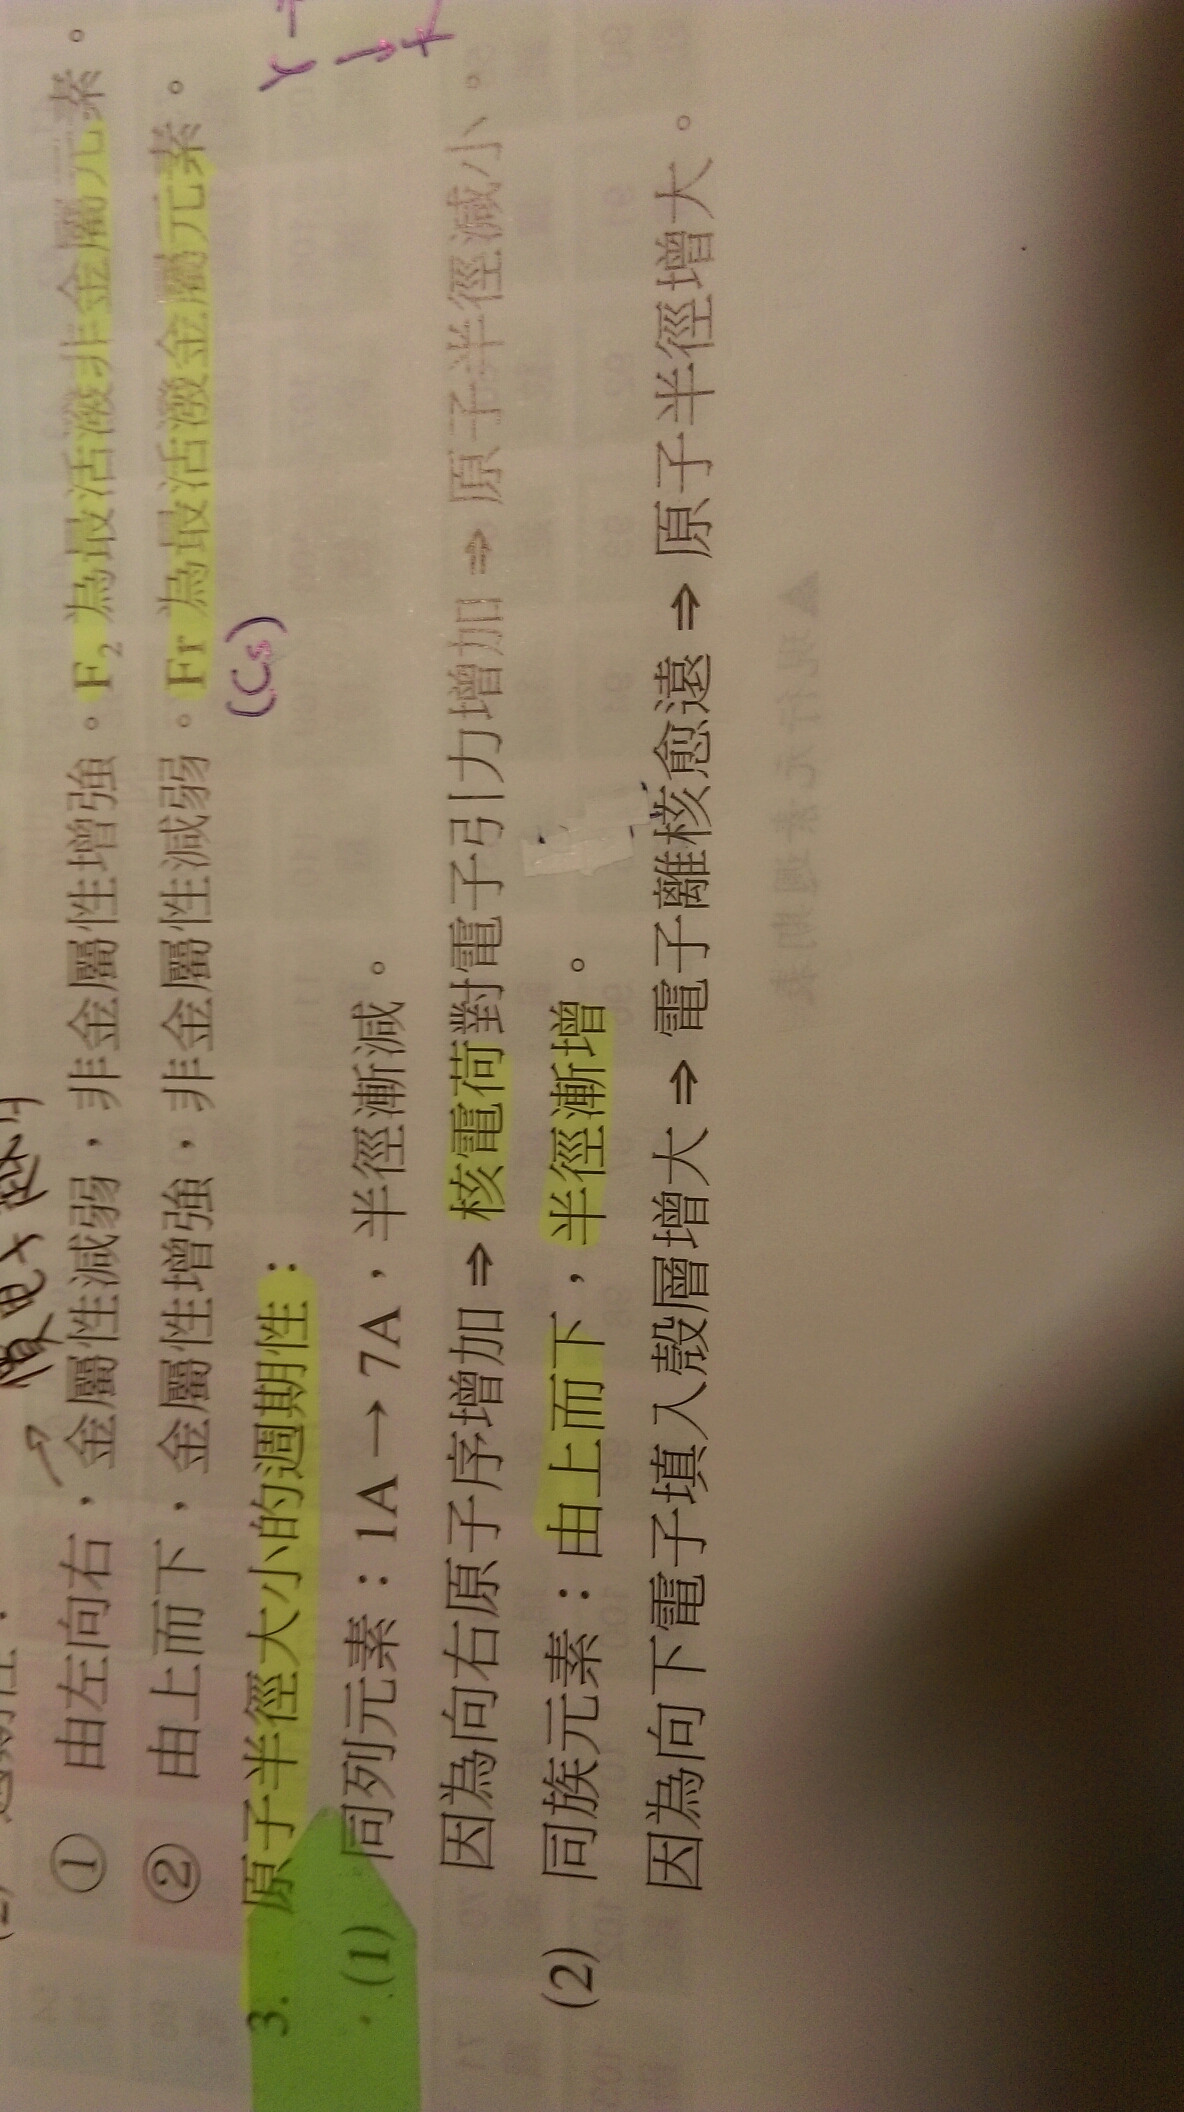 ① 由左向右，金屬性減弱，非金屬性增強。F₂ 為最活潑非金屬元素。
② 由上而下，金屬性增強，非金屬性減弱。Fr 為最活潑金屬元素。
(Cs)
3. 原子半徑大小的週期性：
(1) 同列元素：1A → 7A，半徑漸減。
因為向右原子序增加 ⇒ 核電荷對電子引力增加 ⇒ 原子半徑減小。
(2) 同族元素：由上而下，半徑漸增。
因為向下電子填入殼層增大 ⇒ 電子離核愈遠 ⇒ 原子半徑增大。